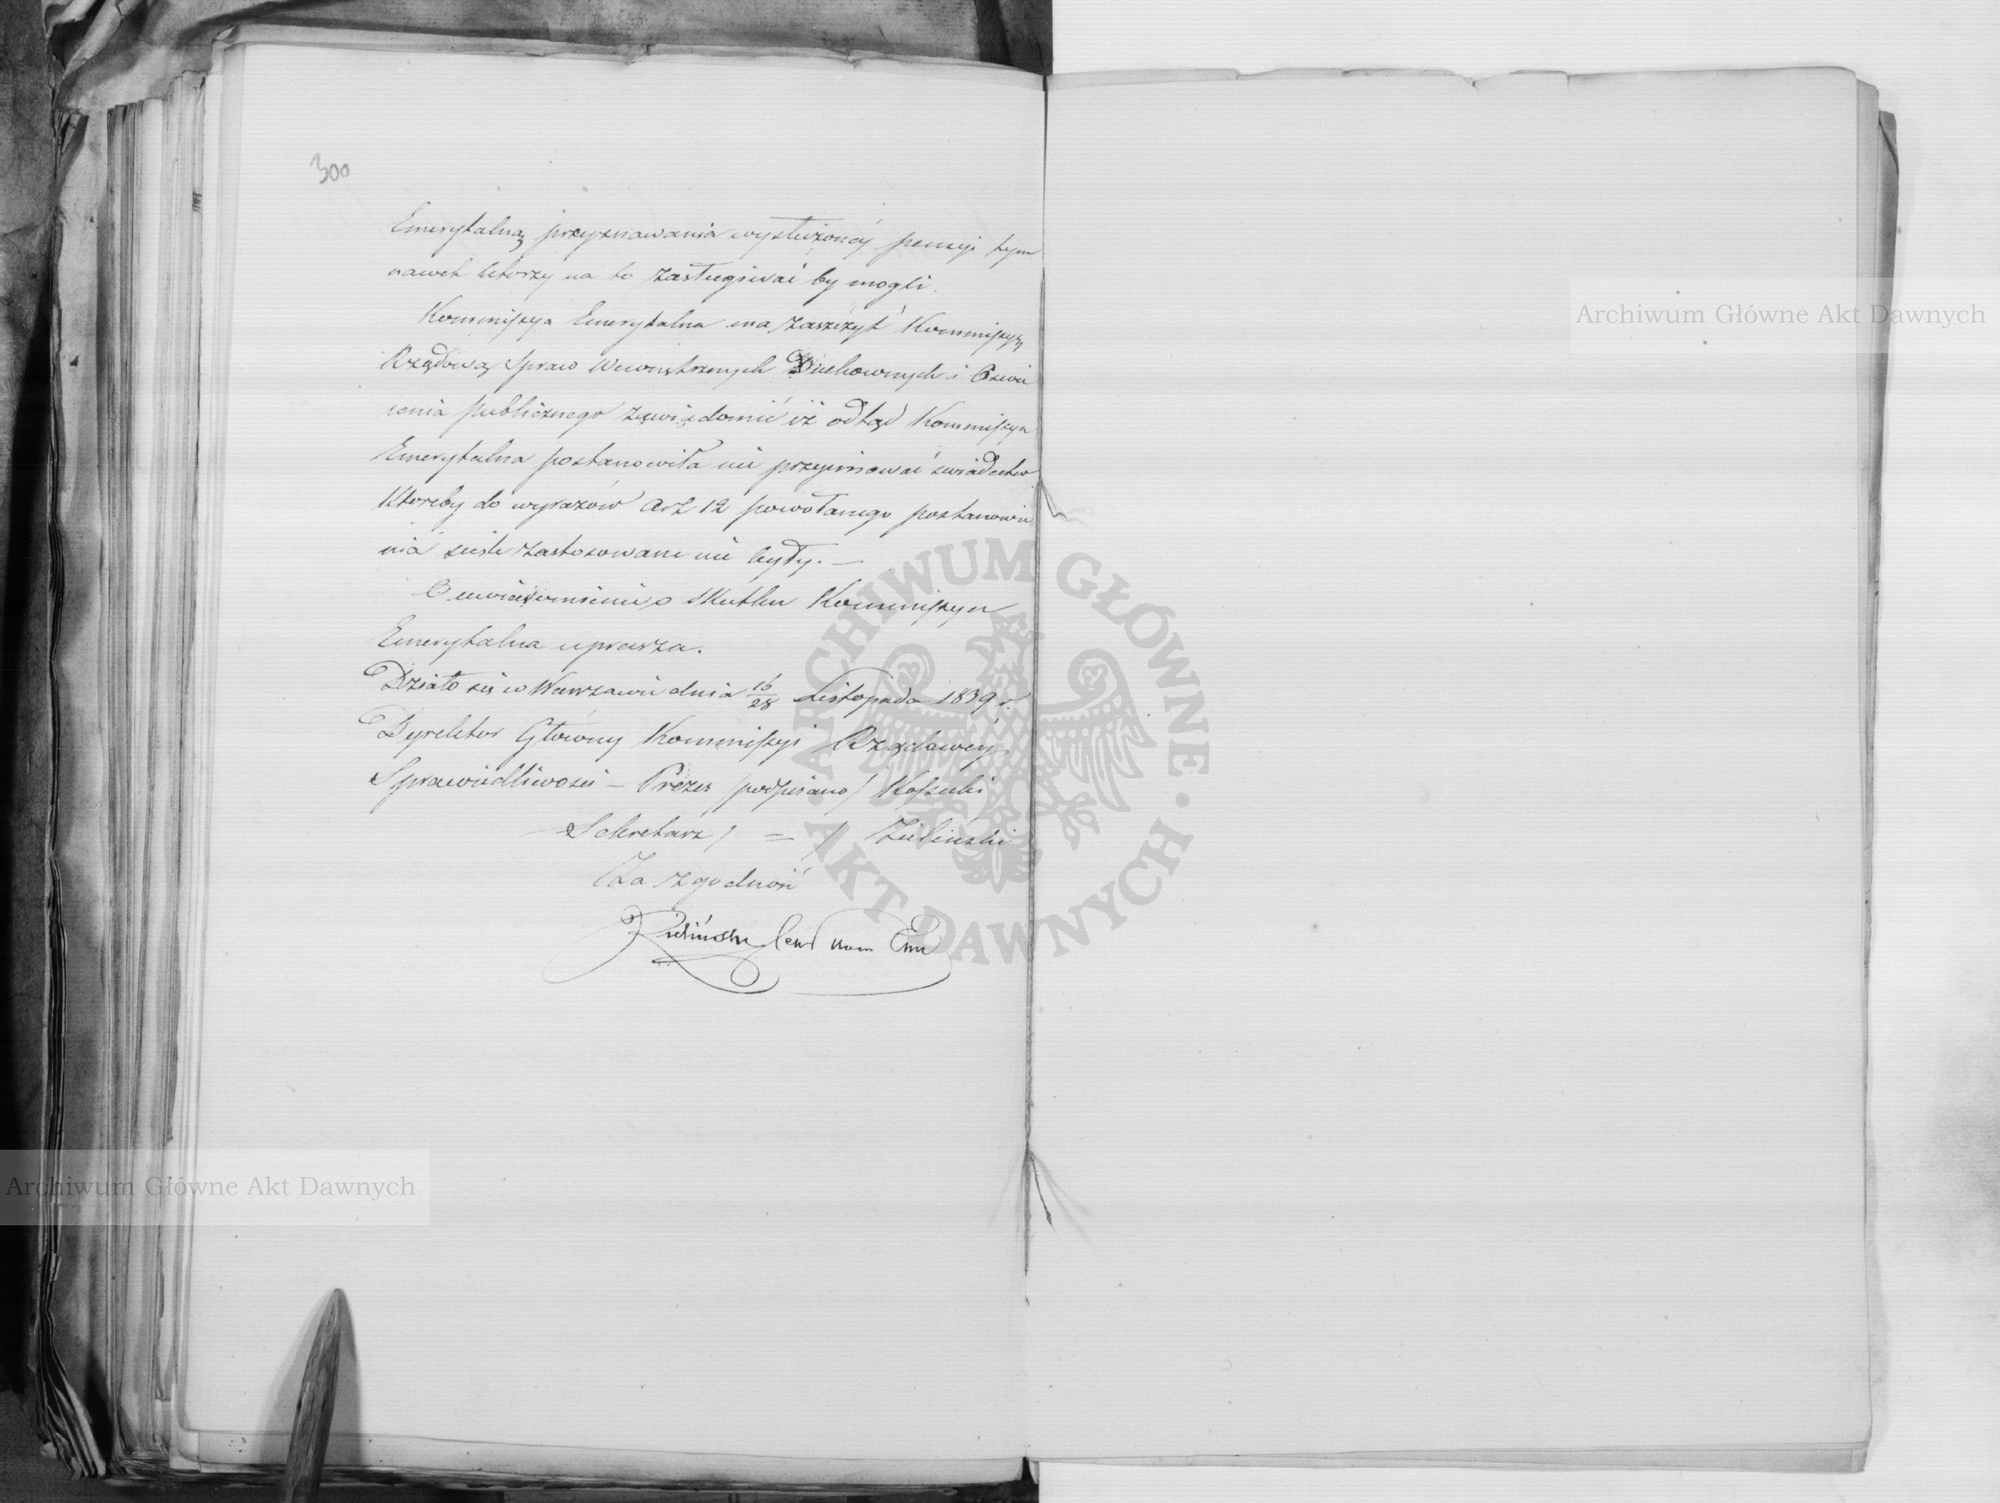 300
Emerytalną przyznawania wysłużonéy pensyi tym
nawet którzy na to zasługiwać by mogli.
Kommissya Emerytalna ma zaszczyt Kommissyą
Rządową Spraw Wewnętrznych Duchownych i Oświe
cenia publicznego zawiadomić iż odtąd Kommissya
Emerytalna postanowiła nie przyimować świadectw
któreby do wyrazów Art 12 powołanego postanowie
nia ściśle zastosowane nie były. —
O uwiadomienie o skutku Kommissya
Emerytalna uprasza.
Działo się w Warszawie dnia 16/28 Listopada 1839 r.
Dyrektor Główny Kommissyi Rządowéy
Sprawiedliwości – Prezes /podpisano/ Kossecki
Sekretarz / = / Zieliński
Za zgodność
Zieliński
Archiwum Główne Akt Dawnych
Archiwum Główne Akt Dawnych
ARCHIWUM GŁÓWNE · AKT DAWNYCH ·